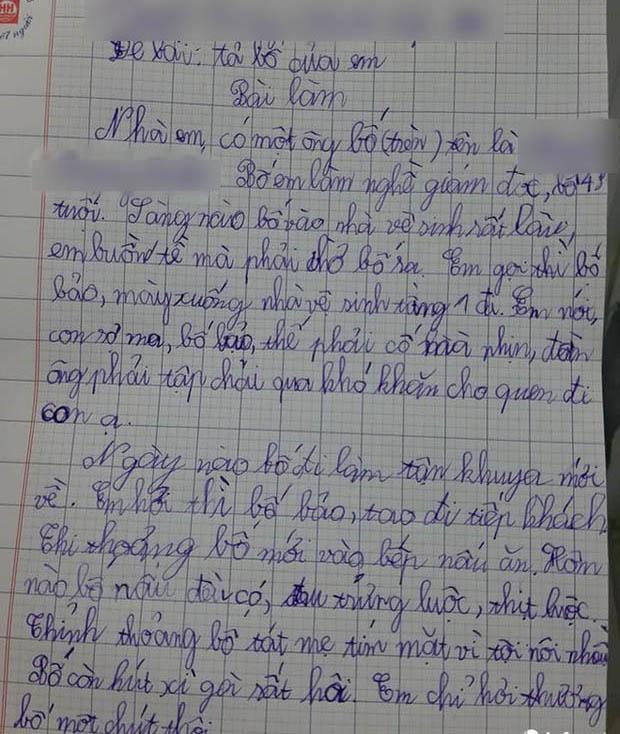 HH
Đề bài: tả bố của em
Bài làm
Nhà em, có một ông bố (trên) tên là
Bố em làm nghề giám đốc, bố 43
tuổi. Sáng nào bố vào nhà vệ sinh rất lâu,
em buồn tè mà phải chờ bố ra. Em gọi thì bố
bảo, mày xuống nhà vệ sinh tầng 1 đi. Em nói,
con sợ ma, bố bảo, thế phải cố mà nhịn, đàn
ông phải tập chải qua khó khăn cho quen đi
con ạ.
Ngày nào bố đi làm tận khuya mới
về. Em hỏi thì bố bảo, tao đi tiếp khách
Thi thoảng bố mới vào bếp nấu ăn. Hôm
nào bố nấu đều có, trứng luộc, thịt luộc.
Thỉnh thoảng bố tát mẹ tím mặt vì tội nói nhều
Bố còn hút xì gà rất hôi. Em chỉ hơi thương
bố một chút thôi